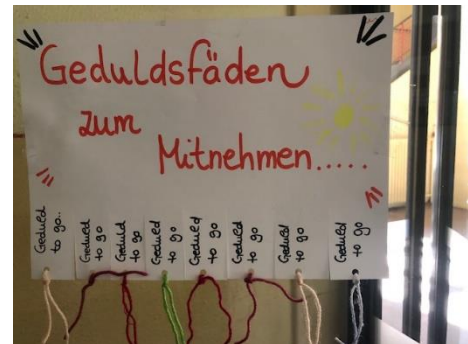 Geduldsfäden
zum
Mitnehmen.....
Geduld
to go..
Geduld
to go
Geduld
to go
Geduld
to go
Geduld
to go
Geduld
to go
Geduld
to go
Geduld
to go